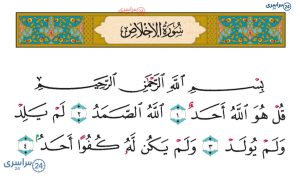 سراسری 24
سراسری
سُورَةُ الإِخْلَاصِ
بِسْمِ اللَّهِ الرَّحْمَٰنِ الرَّحِيمِ
قُلْ هُوَ اللَّهُ أَحَدٌ ١ اللَّهُ الصَّمَدُ ٢ لَمْ يَلِدْ
وَلَمْ يُولَدْ ٣ وَلَمْ يَكُن لَّهُ كُفُوًا أَحَدٌ ٤
سراسری 24
24